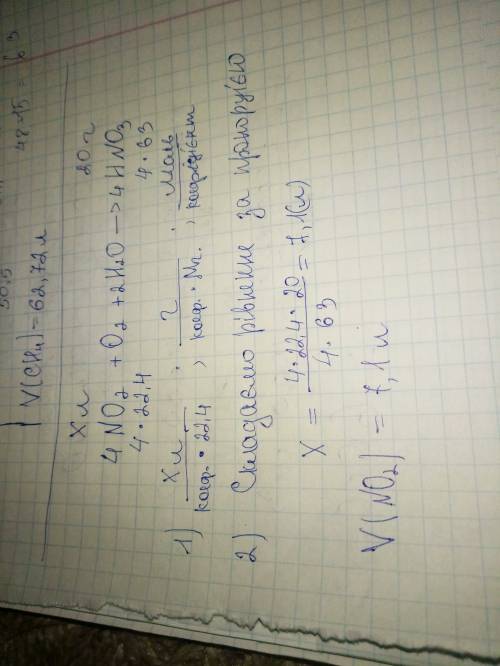 V(CH₄) = 62,72 л
48+15 = 63
X л 20 г
4 NO₂ + O₂ + 2H₂O —> 4 HNO₃
4·22,4 4·63
1) X л / коеф.·22,4 ; г / коеф.·Mr. ; моль / коефіцієнт
2) Складаємо рівнення за пропорцією
X = 4·22,4·20 / 4·63 = 7,1(л)
V(NO₂) = 7,1 л